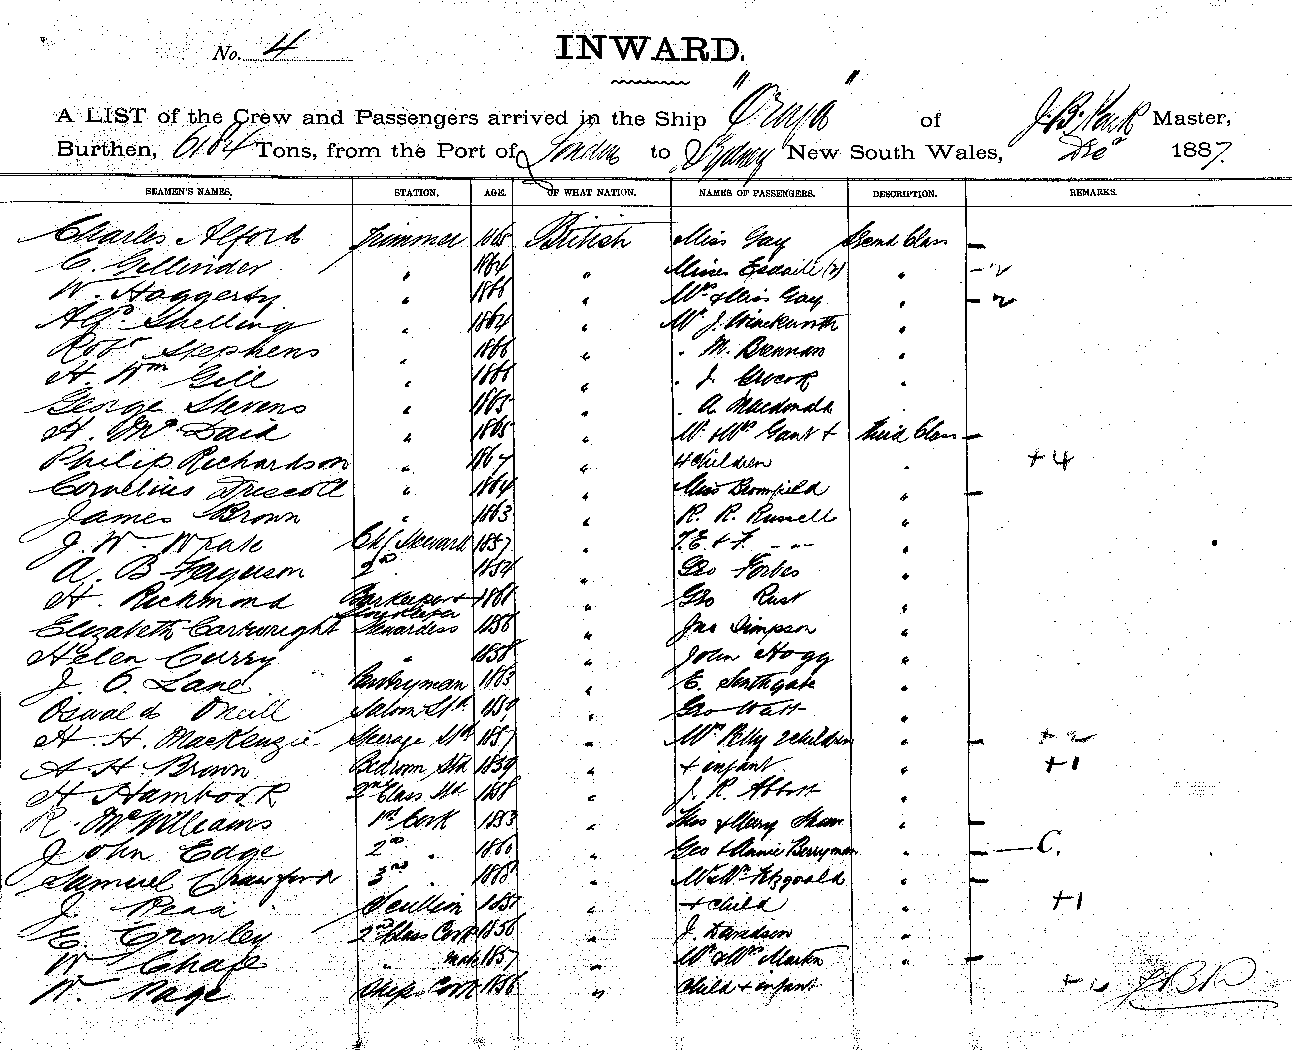 No. 4
INWARD.
A LIST of the Crew and Passengers arrived in the Ship "Oruya" of J. B. Master,
Burthen, 6184 Tons, from the Port of London to Sydney New South Wales, Dec 1887.
SEAMEN'S NAMES. STATION. AGE. OF WHAT NATION. NAMES OF PASSENGERS. DESCRIPTION. REMARKS.
Charles Alford Trimmer 1865 British Miss Gay Second Class -
C. Gillinder " 1864 " Misses Esdaile (2) " - 2
W. Haggerty " 1866 " Mrs & Miss Gay " - 2
Alfd. Skelling " 1864 " Mr J. Winckworth "
Robt Stephens " 1866 " " M. Brennan "
H. Wm Gill " 1866 " " J. "
George Stevens " 1865 " " A. Macdonald "
H. McDaid " 1865 " Mr & Mrs Gant & Third Class -
Philip Richardson " 1867 " 4 children " +4
Cornelius Driscoll " 1864 " Miss Bromfield " -
James Brown " 1863 " R. R. Russell "
J. W. Chf Steward 1857 " T. E. & F. " "
A. B Ferguson 2nd " 1854 " Geo Forbes "
H. Richmond Barkeeper & 1861 " Geo Rust "
Elizabeth Cartwright Stewardess 1856 " Jno Simpson "
Helen Curry " 1858 " John Hogg "
J. C. Lane Pantryman 1863 " E. Southgate "
Oswald Oneill Saloon Std. 1859 " Geo Watt "
H. H. MacKenzie Steerage Std 1857 " Mrs 2 children " - +2
A H Brown Bedroom Std 1859 " + infant " +1
H Hambook 2nd Class Std 1858 " J. R. Abbott "
R. McWilliams 1st Cook 1853 " Thos & Mary " -
John Edge 2nd " 1860 " Geo & Annie Berryman " - C.
Samuel Crawford 3rd " 1868 " Mr & Mrs Fitzgerald " -
J. Scullion " + child " +1
E. Cronley 2nd Class Cook 1856 " J. Davidson "
W. " mate 1857 " Mr & Mrs Martin " -
W. Page Ships Cook 1856 " child & infant +2